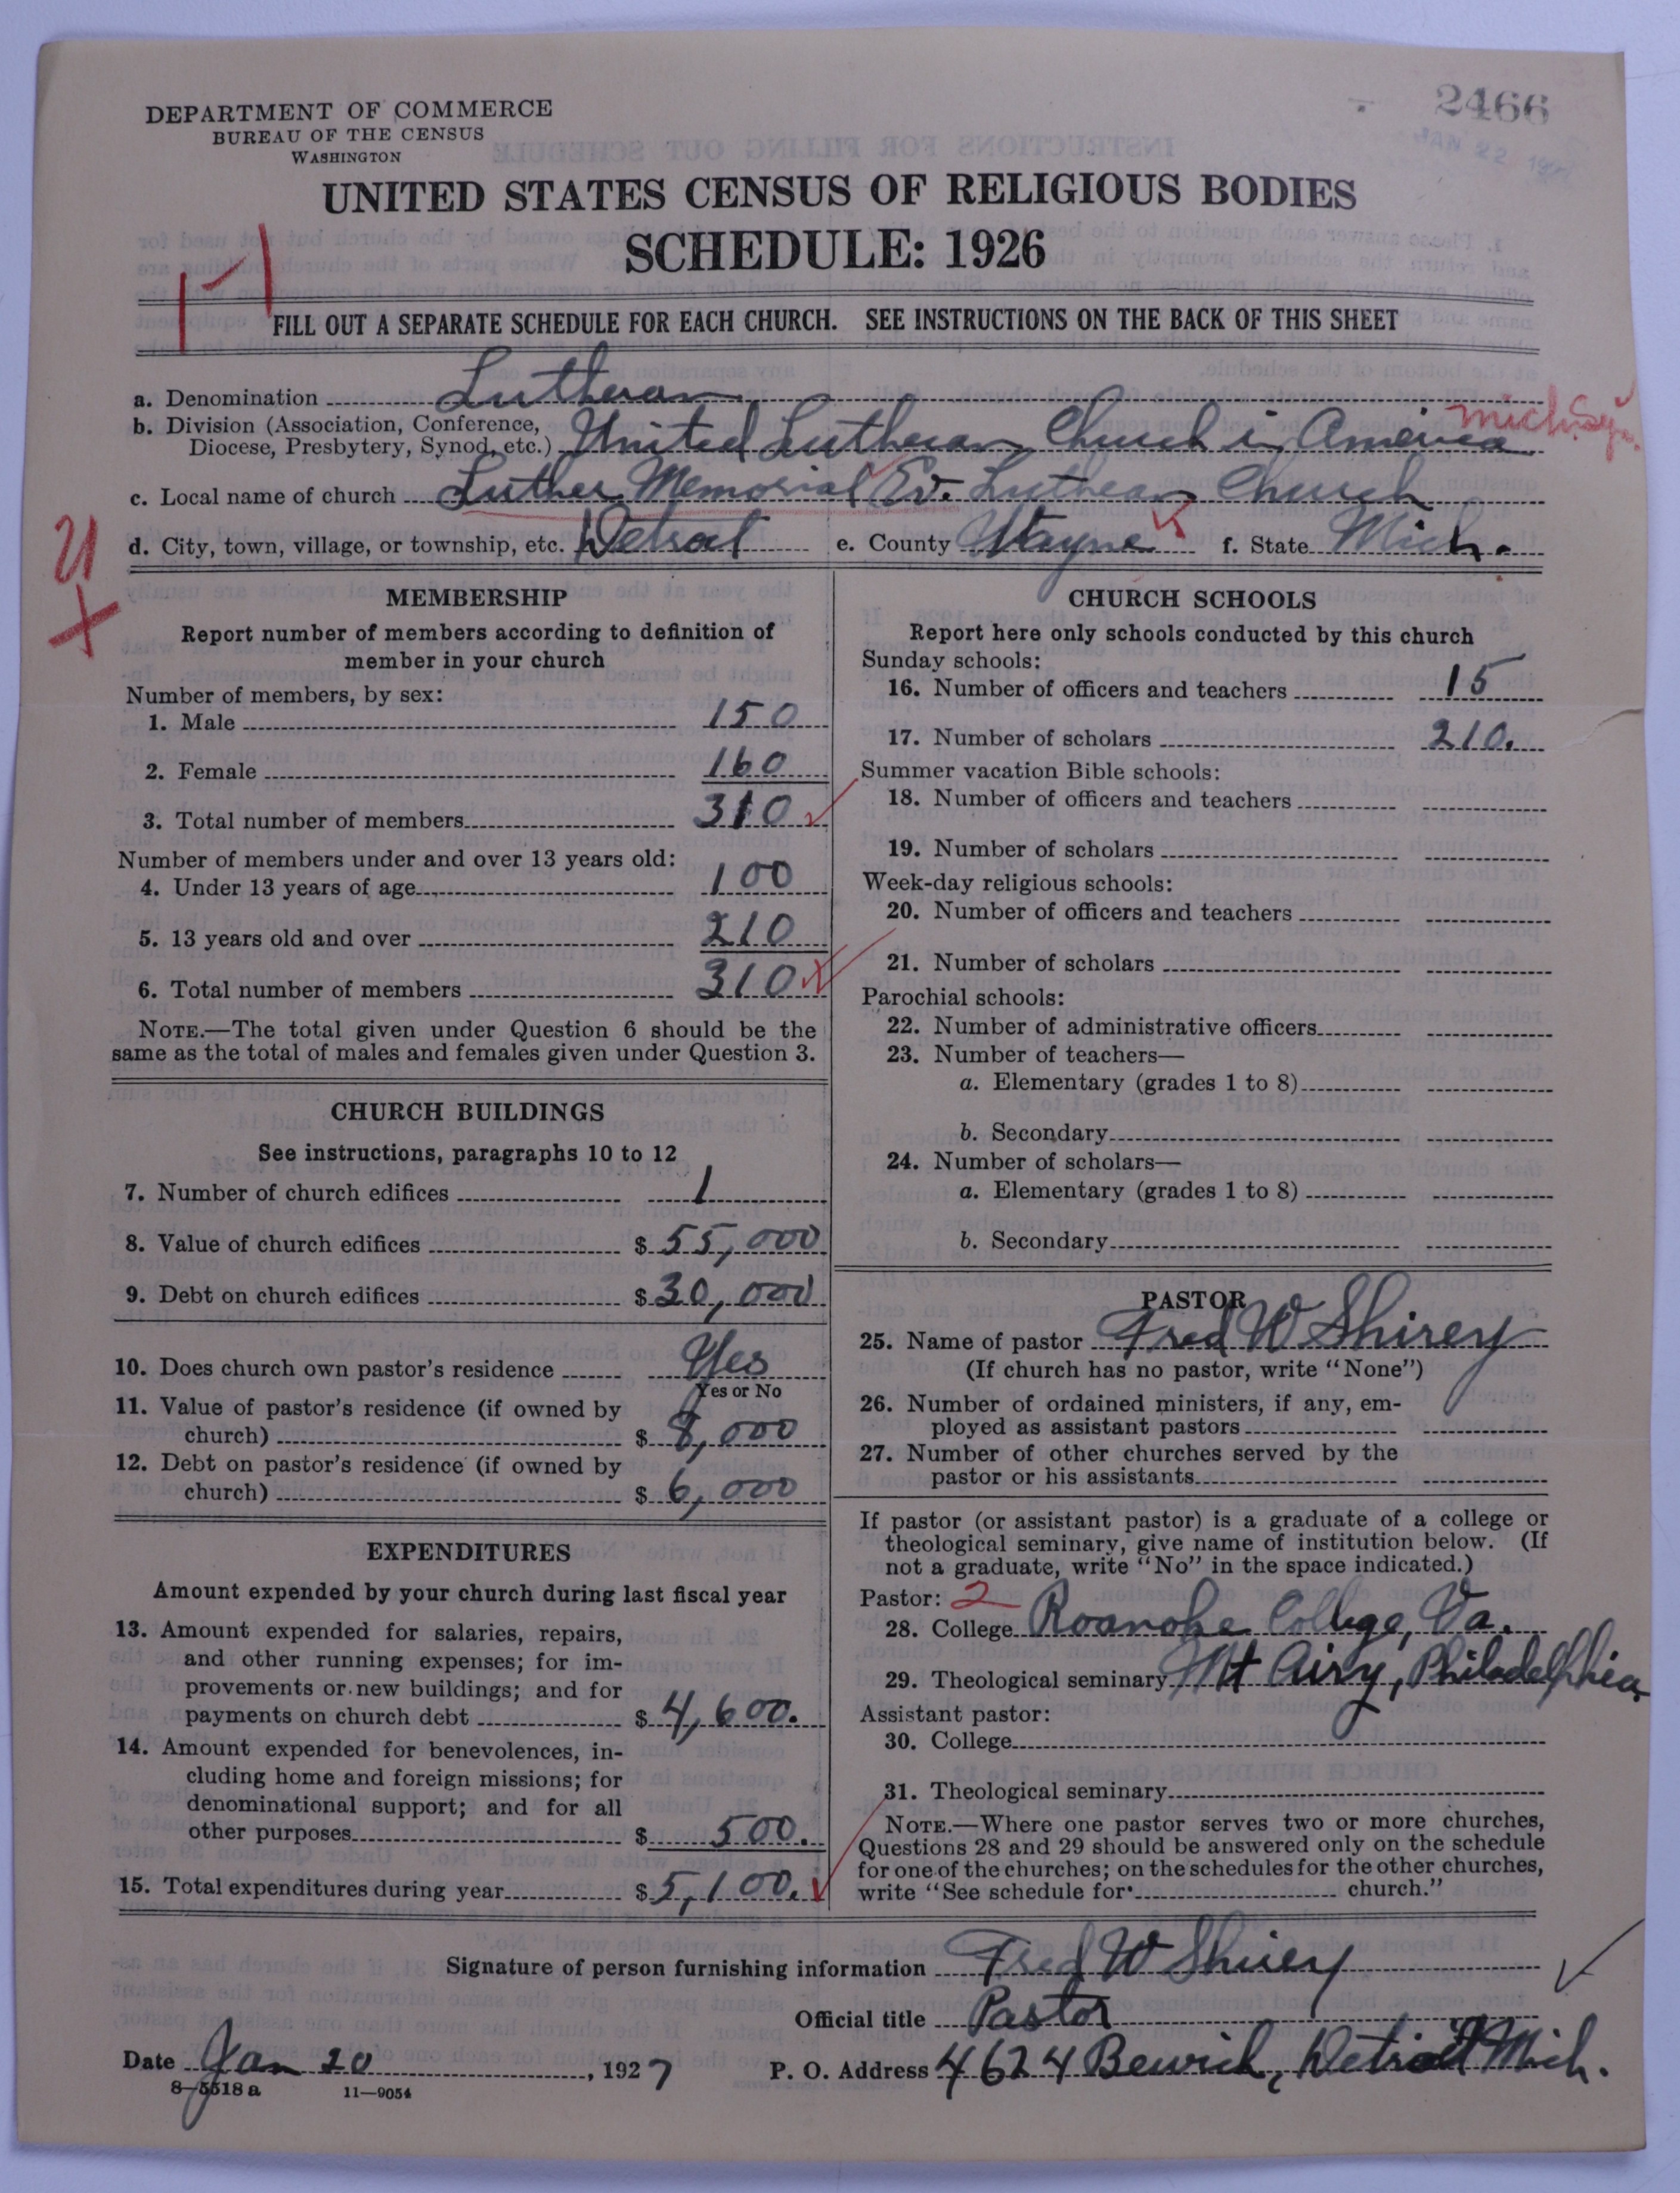 2466
JAN 22 192
DEPARTMENT OF COMMERCE
BUREAU OF THE CENSUS
WASHINGTON
UNITED STATES CENSUS OF RELIGIOUS BODIES
SCHEDULE: 1926
FILL OUT A SEPARATE SCHEDULE FOR EACH CHURCH. SEE INSTRUCTIONS ON THE BACK OF THIS SHEET
a. Denomination Lutheran
Mich. Sy.
b. Division (Association, Conference,
Diocese, Presbytery, Synod, etc.) United Lutheran Church in America
c. Local name of church Luther Memorial Ev. Lutheran Church
d. City, town, village, or township, etc. Detroit e. County Wayne f. State Mich.
21
MEMBERSHIP
Report number of members according to definition of
member in your church
Number of members, by sex:
1. Male 150
2. Female 160
3. Total number of members 310
Number of members under and over 13 years old:
4. Under 13 years of age 100
5. 13 years old and over 210
6. Total number of members 310
NOTE.—The total given under Question 6 should be the
same as the total of males and females given under Question 3.
CHURCH BUILDINGS
See instructions, paragraphs 10 to 12
7. Number of church edifices 1
8. Value of church edifices $ 55,000
9. Debt on church edifices $ 30,000
10. Does church own pastor's residence Yes
Yes or No
11. Value of pastor's residence (if owned by
church) $ 8,000
12. Debt on pastor's residence (if owned by
church) $ 6,000
EXPENDITURES
Amount expended by your church during last fiscal year
13. Amount expended for salaries, repairs,
and other running expenses; for im-
provements or new buildings; and for
payments on church debt $ 4,600.
14. Amount expended for benevolences, in-
cluding home and foreign missions; for
denominational support; and for all
other purposes $ 500.
15. Total expenditures during year $ 5,100.
CHURCH SCHOOLS
Report here only schools conducted by this church
Sunday schools:
16. Number of officers and teachers 15
17. Number of scholars 210.
Summer vacation Bible schools:
18. Number of officers and teachers
19. Number of scholars
Week-day religious schools:
20. Number of officers and teachers
21. Number of scholars
Parochial schools:
22. Number of administrative officers
23. Number of teachers—
a. Elementary (grades 1 to 8)
b. Secondary
24. Number of scholars—
a. Elementary (grades 1 to 8)
b. Secondary
PASTOR
25. Name of pastor Fred W Shirey
(If church has no pastor, write "None")
26. Number of ordained ministers, if any, em-
ployed as assistant pastors
27. Number of other churches served by the
pastor or his assistants
If pastor (or assistant pastor) is a graduate of a college or
theological seminary, give name of institution below. (If
not a graduate, write "No" in the space indicated.)
Pastor: 2
28. College Roanoke College, Va.
29. Theological seminary Mt Airy, Philadelphia
Assistant pastor:
30. College
31. Theological seminary
NOTE.—Where one pastor serves two or more churches,
Questions 28 and 29 should be answered only on the schedule
for one of the churches; on the schedules for the other churches,
write "See schedule for church."
Signature of person furnishing information Fred W Shirey
Official title Pastor
Date Jan 20, 1927 P. O. Address 4624 Bewick, Detroit Mich.
8-5518 a 11-9054